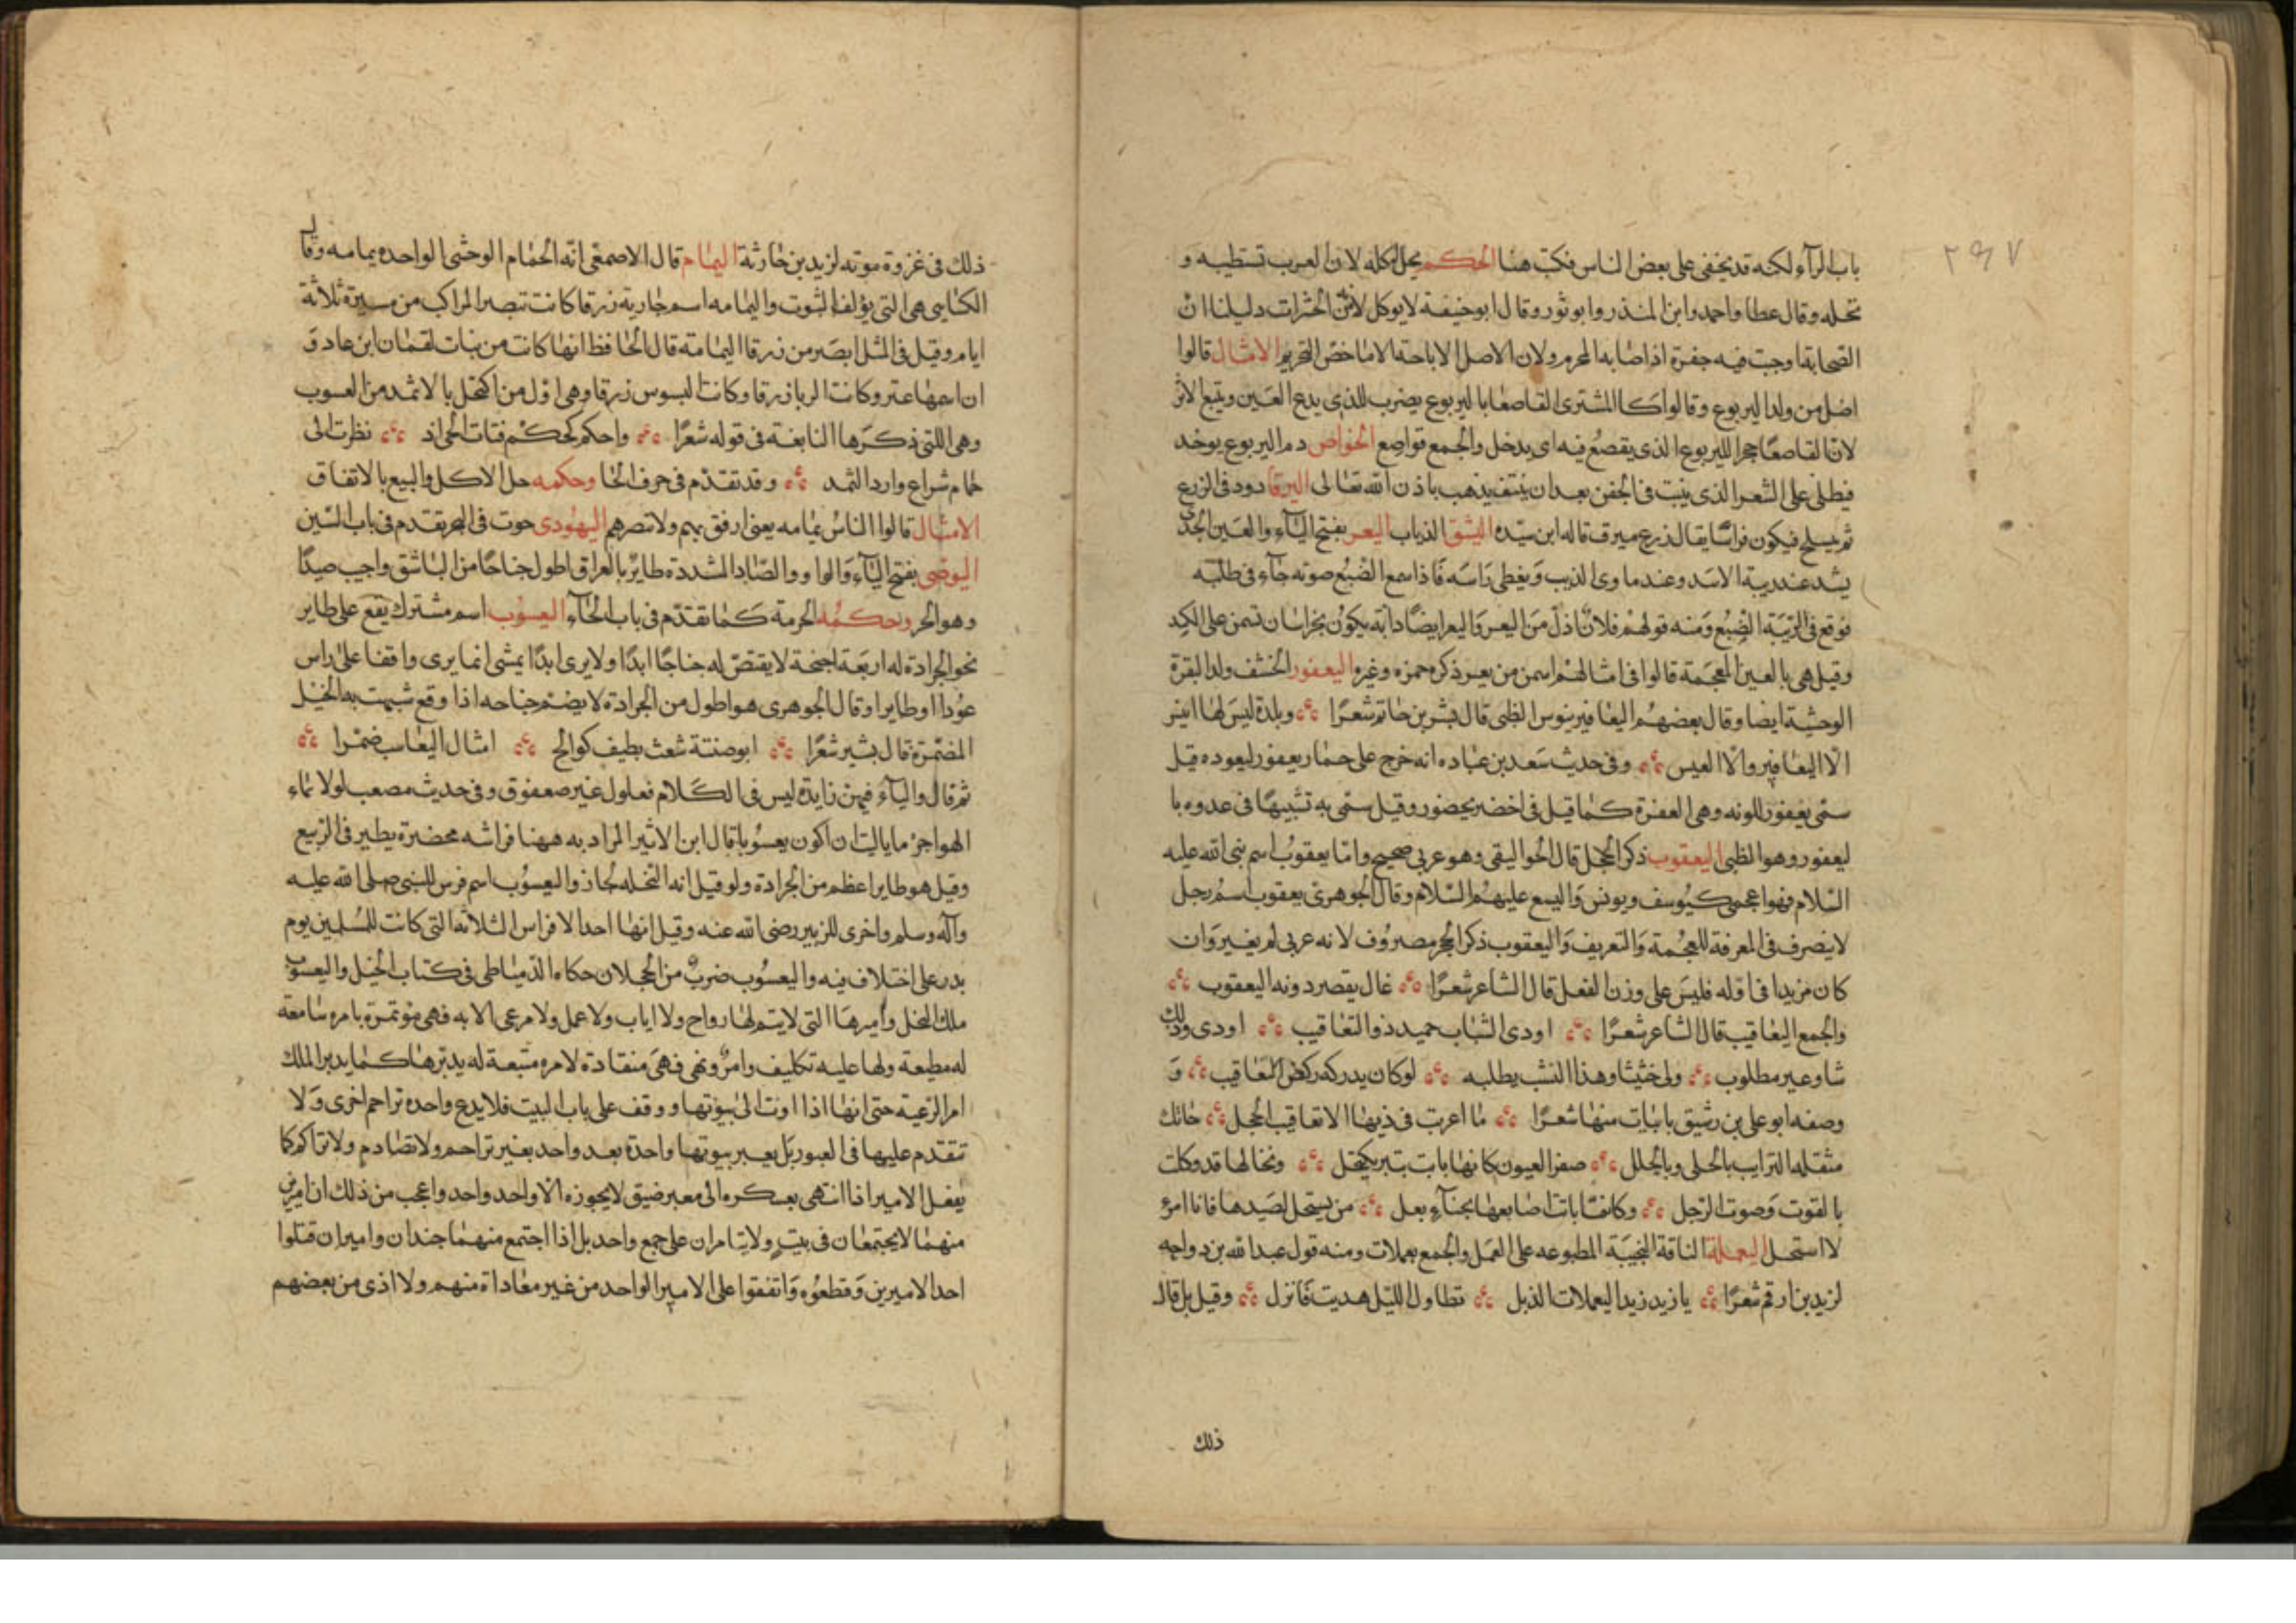 ٢٩٧
باب الرآء لكنه قد يخفى على بعض الناس فكتب هنا الحكم يحل اكله لان العرب تستطيبه و
تحله وقال عطا واحمد وابن المنذر وابو ثور وقال ابو حنيفة لا يوكل لانه من الحشرات دليلنا ان
الصحابة اوجبت فيه جفرة اذا اصابه المحرم ولان الاصل الاباحة الا ما خص التحريم الامثال قالوا
اضل من ولد اليربوع وقالوا كالمشترى القاصعا باليربوع يضرب للذى يدع العين ويتبع الاثر
لان القاصعا حجر اليربوع الذى يقصع فيه اى يدخل والجمع قواصع الخواص دم اليربوع يوخد
فيطلى على الشعر الذى ينبت فى الجفن بعد ان ينتف يذهب باذن الله تعالى اليرقا دود فى الزرع
ثم يسلح فيكون فراشا يقال زرع ميرق قاله ابن سيده اليشق الذباب اليعر بفتح اليآء والعين الجدى
يشد عند زبية الاسد وعند ماوى الذيب ويغطى راسه فاذا سمع الضبع صوته جآء فى طلبه
فوقع فى الزبية الضبع ومنه قولهم فلان اذل من اليعر واليعر ايضا دابة يكون بخراسان تسمن على الكد
وقيل هى بالعين المعجمة قالوا فى امثالهم اسمن من يعر ذكره حمزه وغيره اليعفور الخشف ولد البقرة
الوحشية ايضا وقال بعضهم اليعافير تيوس الظبى قال بشر بن حاتم شعرًا وبلدة ليس لها انيز
الا اليعافير والا العيس وفى حديث سعد بن عباده انه خرج على حمار يعفور ليعوده قيل
سمى يعفور للونه وهى العفرة كما قيل فى اخضر يحضور وقيل سمى به تشبيها فى عدوه با
ليعفور وهو الظبى اليعقوب ذكر الحجل قال الجواليقى وهو عربى صحيح واما يعقوب اسم نبى الله عليه
السلام فهو اعجمى كيوسف ويونس واليسع عليهم السلام وقال الجوهرى يعقوب اسم رجل
لا ينصرف فى المعرفة للعجمة والتعريف واليعقوب ذكر الحجر مصروف لانه عربى لم يغير وان
كان مزيدا فى اوله فليس على وزن الفعل قال الشاعر شعرًا غال يقصر دونه اليعقوب
والجمع اليعاقيب قال الشاعر شعرًا اودى الشباب حميد ذو التعاقيب اودى وذلك
شاو غير مطلوب ولى حثيثا وهذا الشيب يطلبه لو كان يدركه ركض اليعاقيب و
وصفه ابو على بن رشيق بابيات منها شعرًا ما اعربت فى ذيها الا تعاقيب الحجل خاتك
مثقلة الترايب بالحلى وبالحلل صفر العيون كانها باتت بتبر يكتحل وتخالها قد وكلت
بالقوت وصوت الزجل وكانما باتت اصابعها بحنآء بعل من يستحل لصيدها فانا امرؤ
لا استحل اليعملة الناقة النجيبة المطبوعه على العمل والجمع يعملات ومنه قول عبد الله بن رواحه
لزيد بن ارقم شعرًا يا زيد زيد اليعملات الذبل تطاول الليل هديت فانزل وقيل بل قال
ذلك
ذلك فى غزوة موته لزيد بن حارثة اليمام قال الاصمعى انه الحمام الوحشى الواحده يمامه وقال
الكسايى هى التى يؤلف البيوت واليمامه اسم جارية زرقا كانت تبصر الراكب من مسيرة ثلاثة
ايام وقيل فى المثل ابصر من زرقا اليمامة قال الجاحظ انها كانت من بنات لقمان ابن عاد و
ان اسمها عنز وكانت الربا زرقا وكانت البسوس زرقا وهى اول من اكتحل بالاثمد من العسوب
وهى اللتى ذكرها النابغة فى قوله شعرًا واحكم كحكم فتات الحى اذ نظرت الى
حمام شراع وارد الثمد وقد تقدم فى حرف الحا وحكمه حل الاكل والبيع بالاتفاق
الامثال قالوا الناس يمامه يعنى ارفق بهم ولا تضرهم اليهودى حوت فى البحر يتقدم فى باب السين
اليوضى بفتح اليآء والواو والصاد المشددة طاير بالعراق اطول جناحا من الباشق واجب صيدا
وهو الحر وحكمه الحرمة كما تقدم فى باب الحآء اليعسوب اسم مشترك يقع على طاير
نحو الجرادة له اربعة اجنحة لا يقتض له جناحا ابدا ولا يرى ابدا يمشى انما يرى واقفا على راس
عود او طايرا وقال الجوهرى هو اطول من الجرادة لا يضم جناحه اذا وقع شبهت به الخيل
المضمرة قال بشير شعرًا ابو صنتة شعث بطيف كوالح امثال اليعاسب ضمرا
ثم قال واليآء فيهن زايدة ليس فى الكلام فعلول غير صعفوق وفى حديث مصعب لولا ظماء
الهواجر ما باليت ان اكون يعسوبا قال ابن الاثير المراد به ههنا فراشه محضرة يطير فى الربيع
وقيل هو طاير اعظم من الجرادة ولو قيل انه النخله لجاز واليعسوب اسم فرس للنبى صلى الله عليه
وآله وسلم واخرى للزبير رضى الله عنه وقيل انها احد الافراس الثلاثه التى كانت للمسلمين يوم
بدر على اختلاف فيه واليعسوب ضرب من الحجلان حكاه الدمياطى فى كتاب الخيل واليعسوب
ملك النحل واميرها التى لا يتم لها رواح ولا اياب ولا عمل ولا مرعى الا به فهى موتمرة بامره سامعة
له مطيعة ولها عليه تكليف وامر ونهى فهى منقادة لامره متبعة له يدبرها كما يدبر الملك
امر الرعية حتى انها اذا اوت الى بيوتها ووقف على باب البيت فلا يدع واحده تزاحم اخرى ولا
تتقدم عليها فى العبور بل يعبر بيوتها واحدة بعد واحد بغير تزاحم ولا تصادم ولا تراكم كما
يفعل الامير اذا انتهى بعسكره الى معبر ضيق لا يجوزه الا واحد واحد واعجب من ذلك ان اميرين
منهما لا يجتمعان فى بيت ولا يتامران على جمع واحد بل اذا اجتمع منهما جندان واميران قتلوا
احد الاميرين وقطعوه واتفقوا على الامير الواحد من غير معاداة منهم ولا اذى من بعضهم